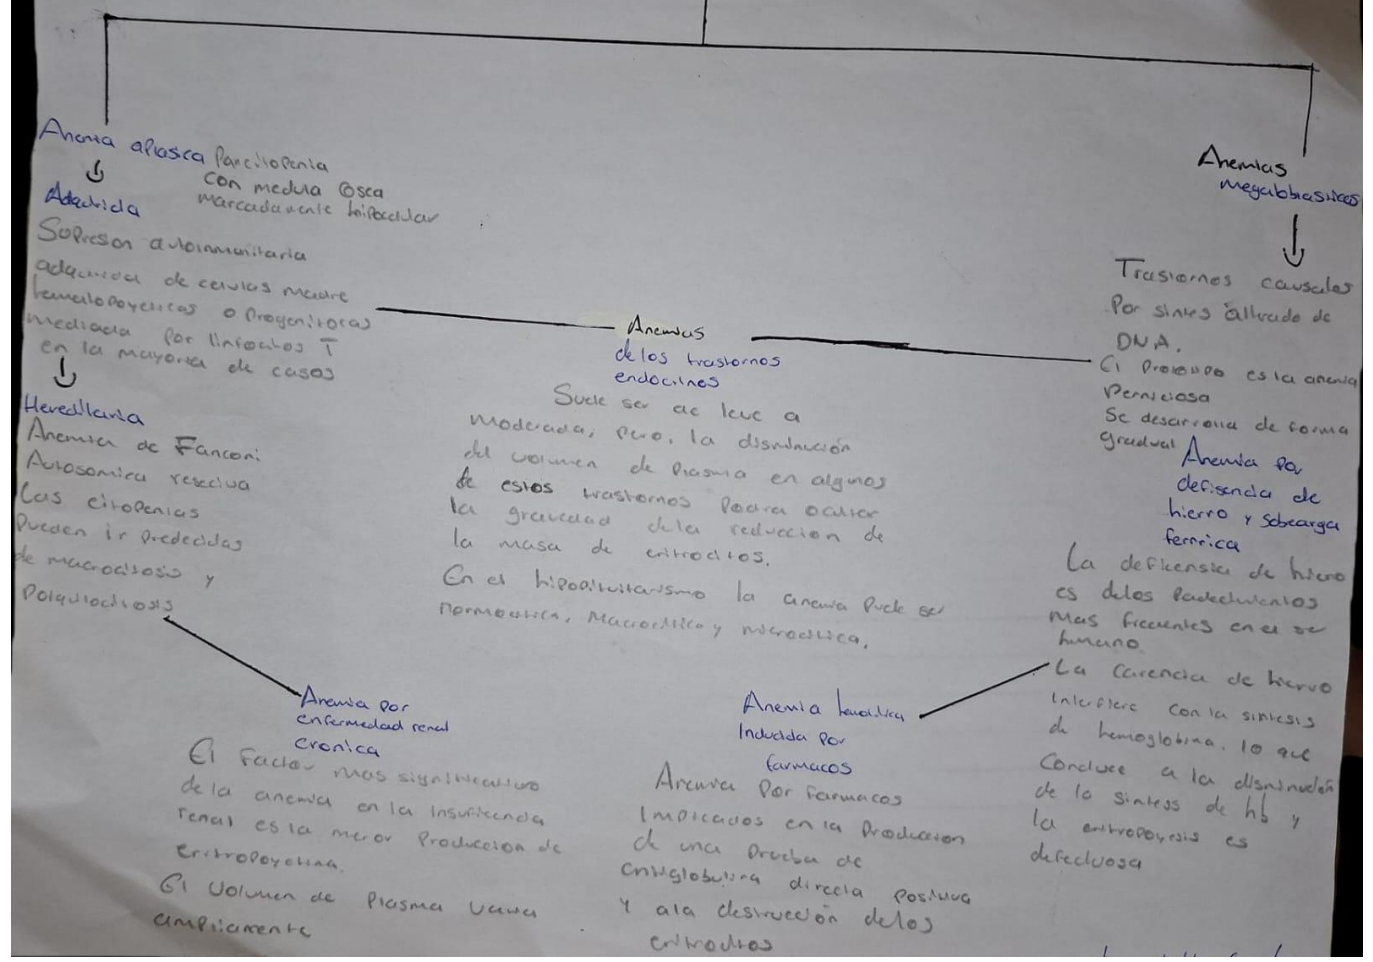 Anemia aplasica Pancitopenia
con medula osea
marcadamente hipocelular
Adquirida
Supresion autoinmunitaria
adquirida de celulas madre
hematopoyeticas o progenitoras
mediada por linfocitos T
en la mayoria de casos
Hereditaria
Anemia de Fanconi
Autosomica recesiva
Las citopenias
Pueden ir predecidas
de macrocitosis y
Poiquilocitosis
Anemias
de los trastornos
endocrinos
Suele ser de leve a
moderada; pero, la disminución
del volumen de plasma en algunos
de estos trastornos Podra ocultar
la gravedad de la reduccion de
la masa de eritrocitos.
En el hipopituitarismo la anemia Puede ser
normocitica, Macrocitica y microcitica.
Anemias
megaloblasticas
Trastornos causales
Por sintes alterado de
DNA.
El prototipo es la anemia
Perniciosa
Se desarrolla de forma
gradual
Anemia por
defisencia de
hierro y sobrearga
ferrrica
La deficensia de hierro
es delos Padecimientos
Mas frecuentes en el ser
humano.
La Carencia de hierro
interfiere con la sintesis
de hemoglobina. lo que
Conduce a la disminución
de la sintess de hb y
la eritropoyesis es
defectuosa
Anemia por
enfermedad renal
cronica
El factor mas significativo
de la anemia en la insuficencia
renal es la menor Produccion de
eritropoyetina.
El Volumen de Plasma varia
ampliamente
Anemia hemolitica
Inducida por
farmacos
Anemia Por farmacos
Implicados en la Produccion
de una Prueba de
antiglobulina directa positiva
y ala destrucción delos
eritrocitos